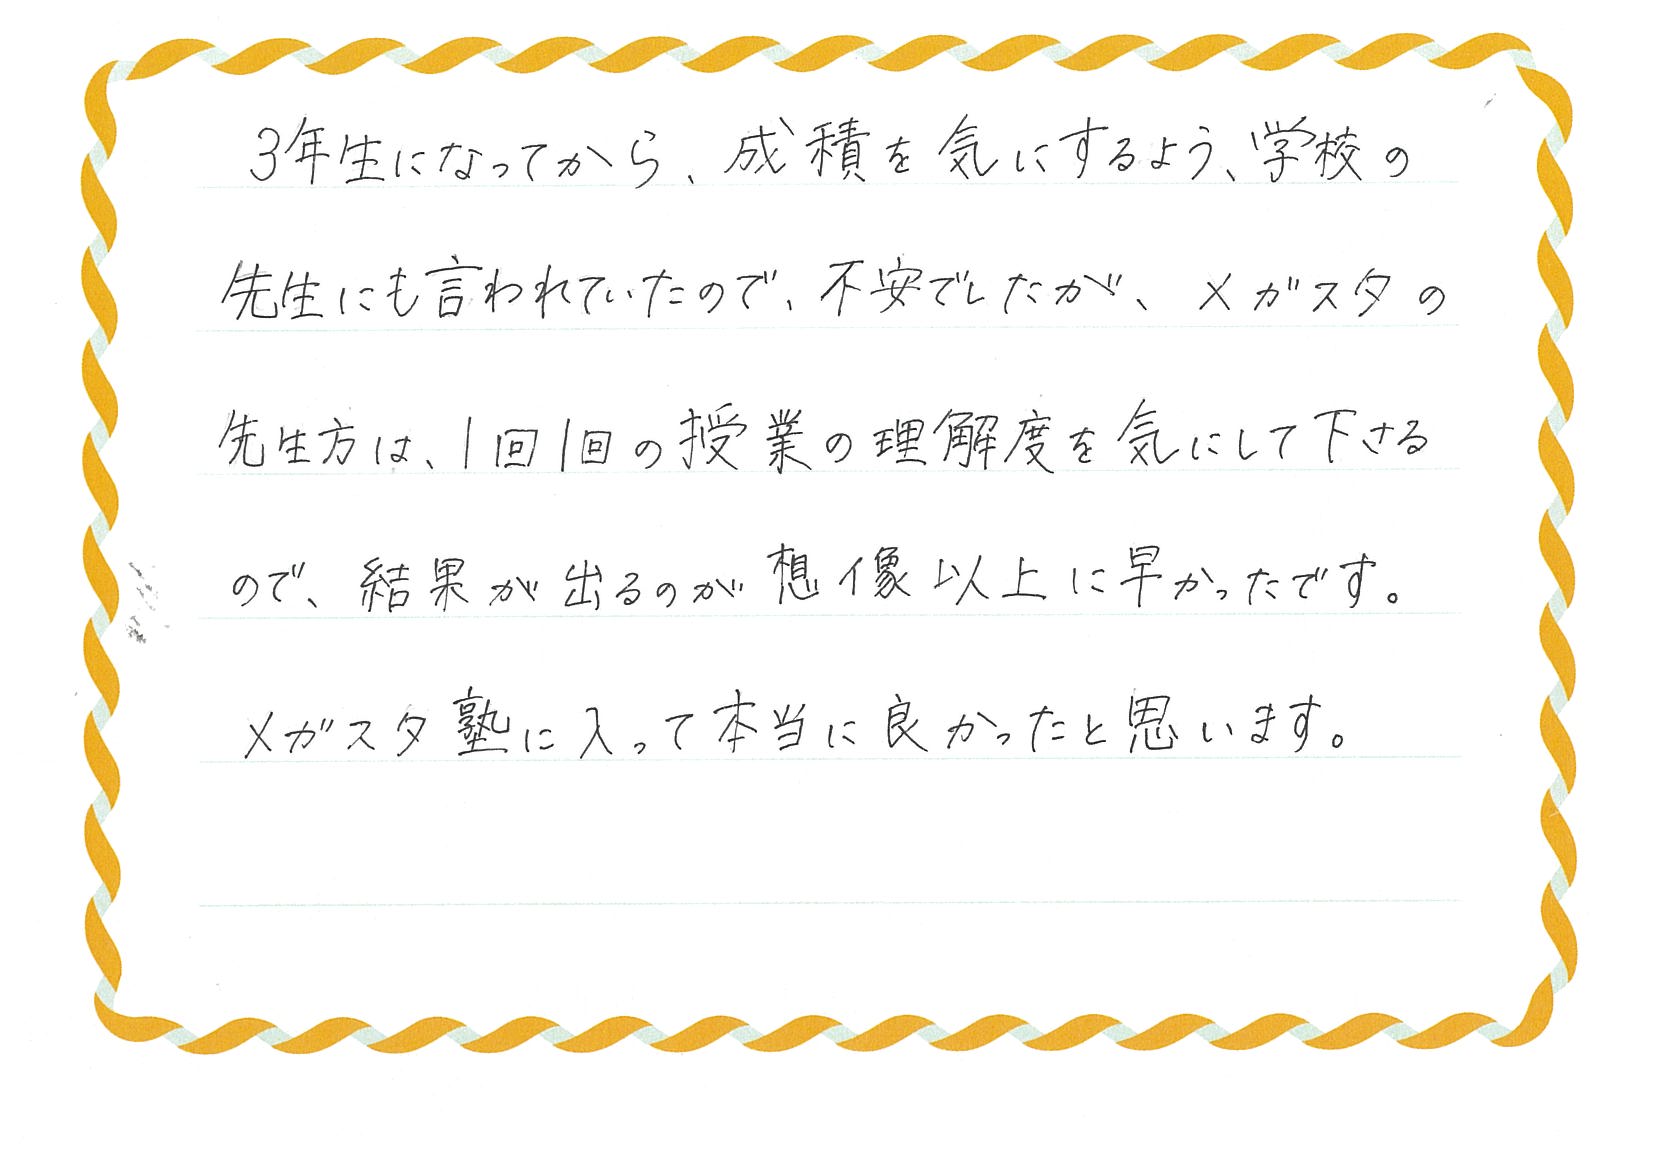 3年生になってから、成積を気にするよう、学校の
先生にも言われていたので、不安でしたが、メガスタの
先生方は、1回1回の授業の理解度を気にして下さる
ので、結果が出るのが想像以上に早かったです。
メガスタ塾に入って本当に良かったと思います。